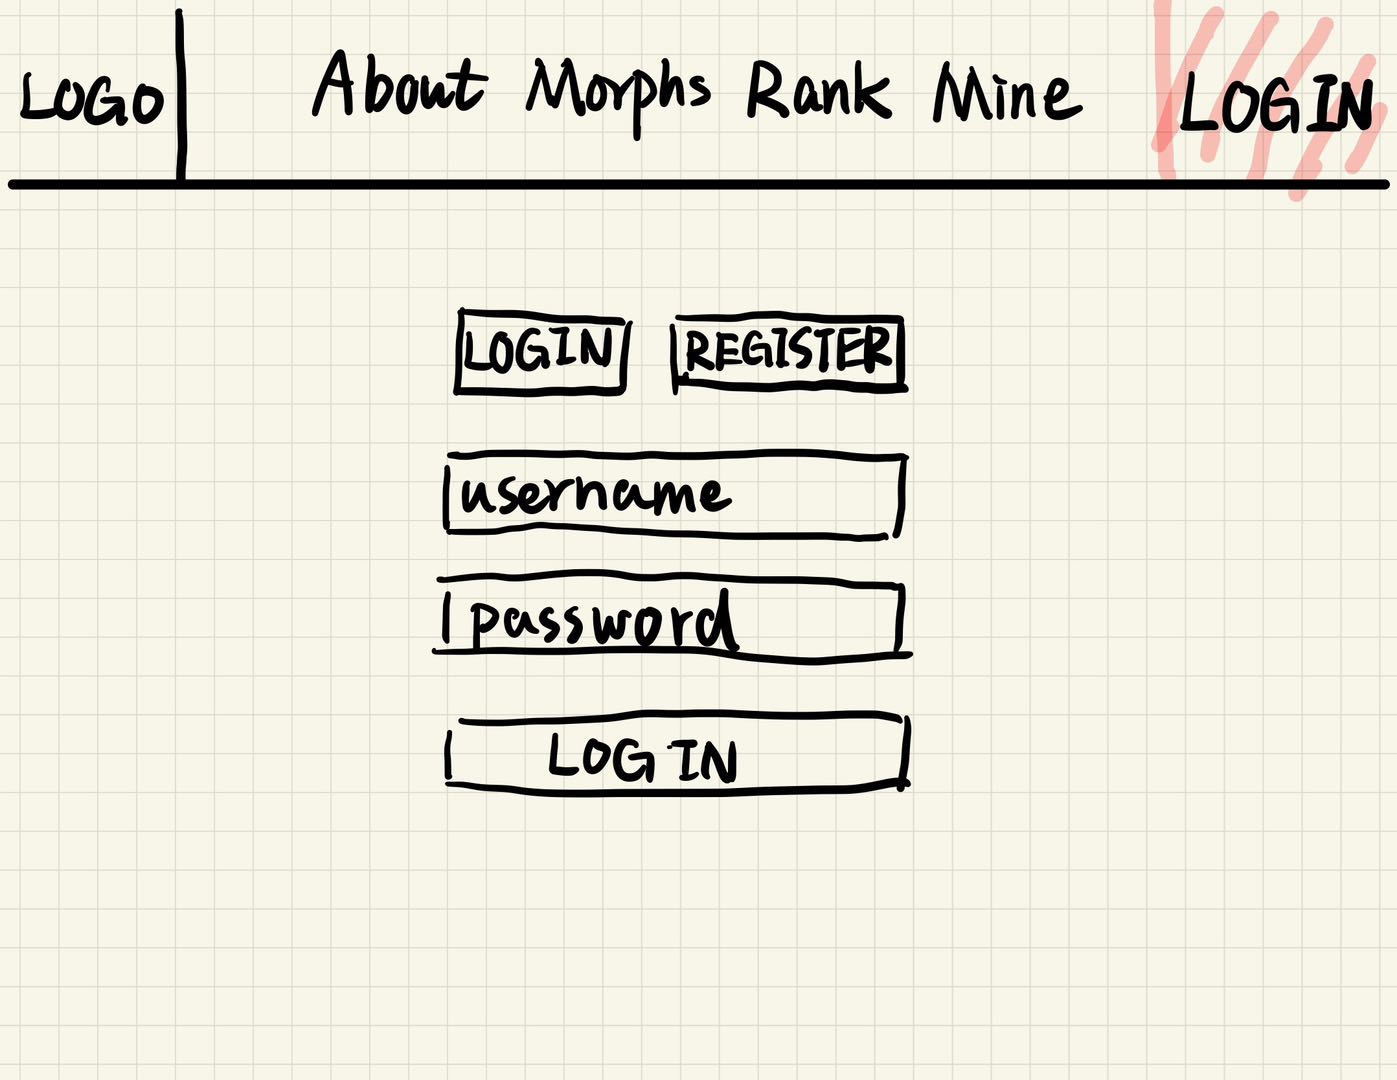 LOGO About Morphs Rank Mine LOGIN
LOGIN REGISTER
username
password
LOGIN